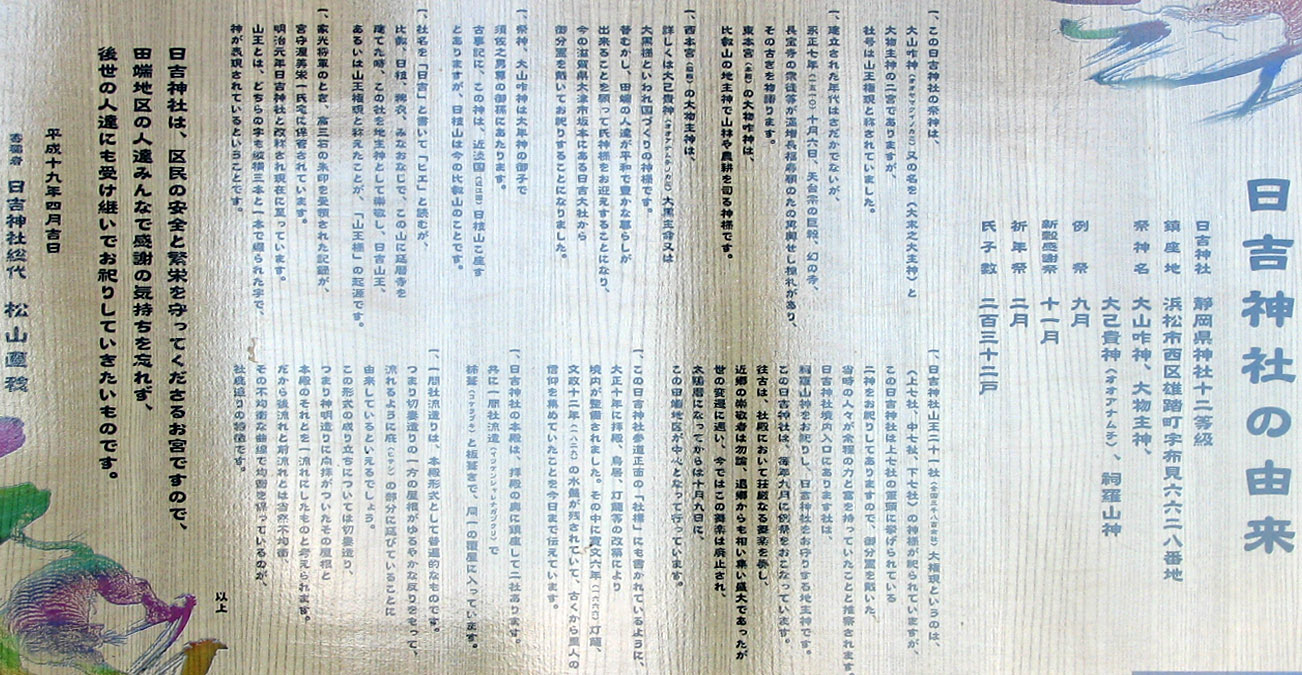 日吉神社の由来
日吉神社　静岡県神社十二等級
鎮座地　浜松市西区雄踏町宇布見六六二八番地
祭神名　大山咋神、大物主神、
大己貴神（オオアナムチ）、祠羅山神
例祭　九月
新穀感謝祭　十一月
祈年祭　二月
氏子数　二百三十二戸
一、この日吉神社の祭神は、
大山咋神（オオヤマクイノカミ）又の名を（大末之大主神）と
大物主神の二宮でありますが、
社号は山王権現と称されていました。
一、建立された年代はさだかでないが、
永正七年（一五一〇）十月六日、天台宗の巨刹、幻の寺、
長宝寺の衆徒等が
その古さを物語ります。
東本宮の大物咋神は、
比叡山の地主神で山林や農耕を司る神様です。
一、西本宮の大物主神は、
詳しくは大己貴神（オオアナムチノカミ）大黒主命又は
大黒様といわれ国づくりの神様です。
昔むかし、田端の人達が平和で豊かな暮らしが
出来ることを願って氏神様をお迎えすることになり、
今の滋賀県大津市坂本にある日吉大社から
御分霊を戴いてお祀りすることになりました。
一、祭神、大山咋神は大年神の御子で
須佐之男尊の御孫にあたります。
古事記に、この神は、近淡国（近江国）日枝山に座す
とありますが、日枝山は今の比叡山のことです。
一、社名を「日吉」と書いて「ヒエ」と読むが、
比叡、日枝、稗衣、みなおなじで、この山に延暦寺を
建てた時、この社を地主神として崇敬し、日吉山王、
あるいは山王権現と称えたことが、「山王様」の起源です。
一、家光将軍のとき、高三石の朱印を受領された記録が、
宮守渥美栄一氏宅に保管されています。
明治元年日吉神社と改称され現在に至っています。
山王とは、どちらの字も縦横三本と一本で綴られた字で、
神が表現されているということです。
一、日吉神社山王二十一社（全国三千八百余社）大権現というのは、
（上七社、中七社、下七社）の神様が祀られていますが、
この日吉神社は上七社の筆頭に挙げられている
二神をお祀りしてありますので、御分霊を戴いた、
当時の人々が余程の力と富を持っていたことと推察されます。
日吉神社境内入口にあります社は、
祠羅山神をお祀りし、日吉神社をお守りする地主神です。
この日吉神社は、毎年九月に例祭をおこなっています。
往古は、社殿において荘厳なる舞楽を奏し、
近郷の崇敬者は勿論、遠郷からも相い集い盛大であったが
世の変遷に遇い、今ではこの舞楽は廃止され、
太陽暦になってからは十月九日に、
この田端地区が中心となって行っています。
一、この日吉神社参道正面の「社標」にも書かれているように、
大正十年に拝殿、鳥居、灯籠等の改築により
境内が整備されました。その中に寛文六年（一六六六）灯籠、
文政十二年（一八二八）の水盤が残されていて、古くから里人の
信仰を集めていたことを今日まで伝えています。
一、日吉神社の本殿は、拝殿の奥に鎮座して二社あります。
共に一間社流造（イッケンシャナガヅクリ）で
柿葺（コケラブキ）と板葺きで、同一の覆屋に入っています。
一、一間社流造りは、本殿形式として普遍的なものです。
つまり切妻造りの一方の屋根がゆるやかな反りをもって、
流れるように庇（ヒサシ）の部分に延びていることに
由来しているといえるでしょう。
この形式の成り立ちについては切妻造り、
つまり神明造りに向拝がついたその屋根と
本殿のそれとを一流れにしたものと考えられます。
だから後流れと前流れとは当然不均衡、
その不均衡な曲線で均衡を保っているのが、
社流造りの特徴です。
以上
日吉神社は、区民の安全と繁栄を守ってくださるお宮ですので、
田端地区の人達みんなで感謝の気持ちを忘れず、
後世の人達にも受け継いでお祀りしていきたいものです。
平成十九年四月吉日
日吉神社総代　松山直